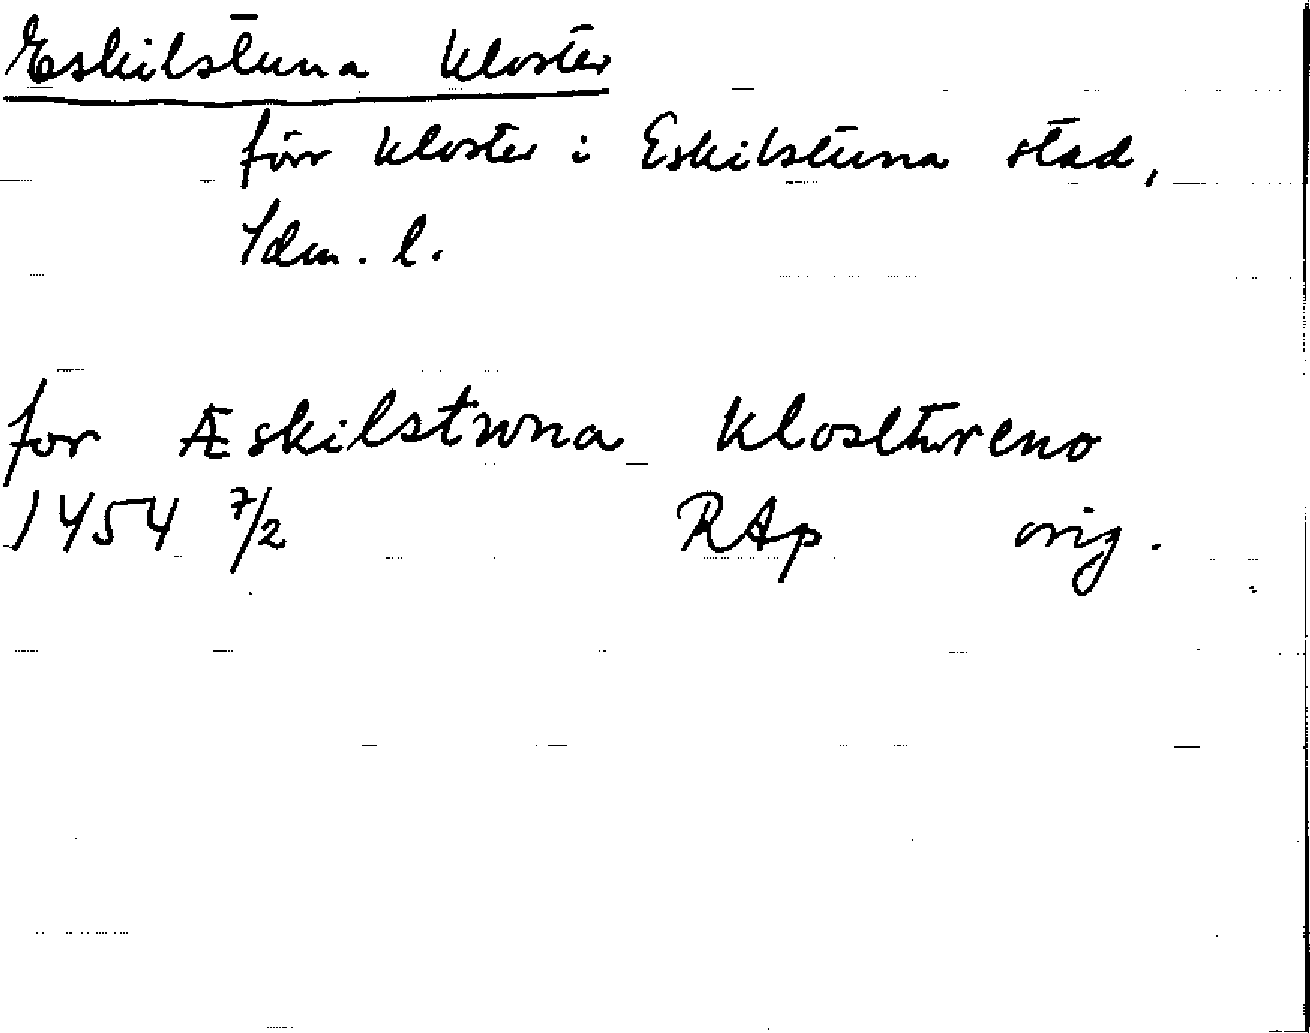 Eskilstuna kloster
förr kloster i Eskilstuna stad,
Sdm. l.
for Æskilstwna klosttreno
1454 7/2 RAp orig.